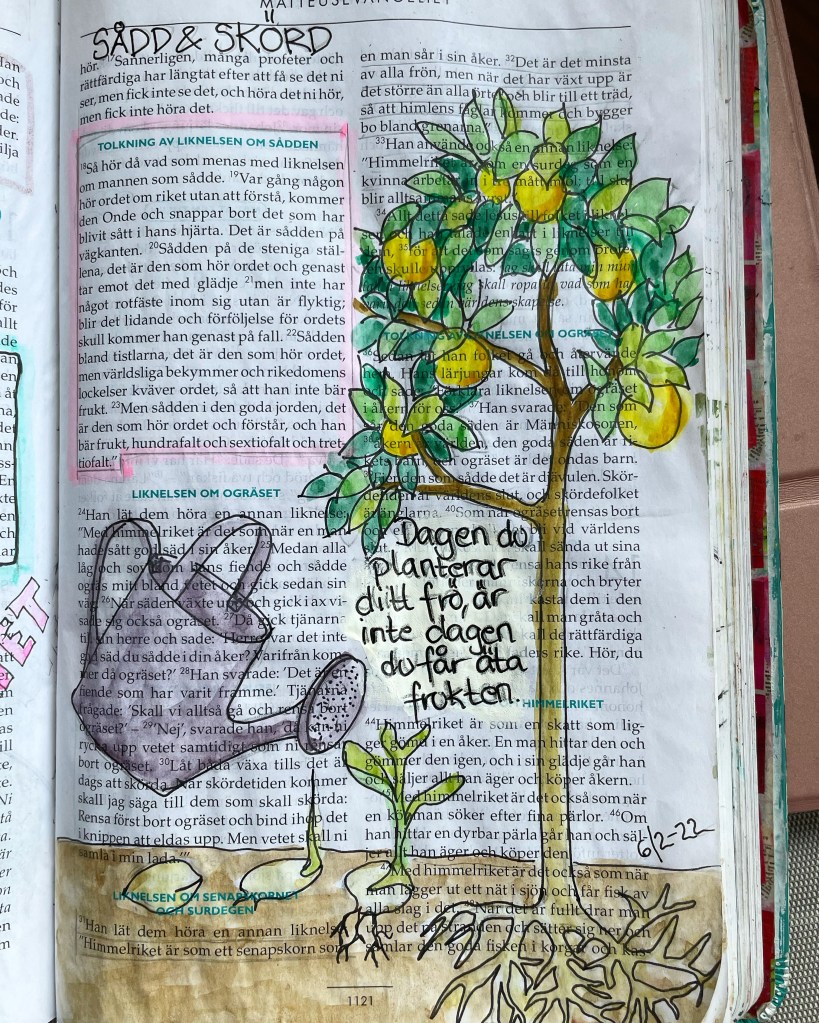 MATTEUSEVANGELIET
SÅDD & SKÖRD
hör. 17Sannerligen, många profeter och
rättfärdiga har längtat efter att få se det ni
ser, men fick inte se det, och höra det ni hör,
men fick inte höra det.
TOLKNING AV LIKNELSEN OM SÅDDEN
18Så hör då vad som menas med liknelsen
om mannen som sådde. 19Var gång någon
hör ordet om riket utan att förstå, kommer
den Onde och snappar bort det som har
blivit sått i hans hjärta. Det är sådden på
vägkanten. 20Sådden på de steniga stäl-
lena, det är den som hör ordet och genast
tar emot det med glädje 21men inte har
något rotfäste inom sig utan är flyktig;
blir det lidande och förföljelse för ordets
skull kommer han genast på fall. 22Sådden
bland tistlarna, det är den som hör ordet,
men världsliga bekymmer och rikedomens
lockelser kväver ordet, så att han inte bär
frukt. 23Men sådden i den goda jorden, det
är den som hör ordet och förstår, och han
bär frukt, hundrafalt och sextiofalt och tret-
tiofalt."
LIKNELSEN OM OGRÄSET
24Han lät dem höra en annan liknelse:
"Med himmelriket är det som när en man
hade sått god säd i sin åker. 25Medan alla
låg och sov kom hans fiende och sådde
ogräs mitt bland vetet och gick sedan sin
väg. 26När säden växte upp och gick i ax vi-
sade sig också ogräset. 27Då gick tjänarna
till sin herre och sade: 'Herre, var det inte
god säd du sådde i din åker? Varifrån kom-
mer då ogräset?' 28Han svarade: 'Det är en
fiende som har varit framme.' Tjänarna
frågade: 'Skall vi alltså gå och rensa bort
ogräset?' – 29'Nej', svarade han, då kan ni
rycka upp vetet samtidigt som ni rensar
bort ogräset. 30Låt båda växa tills det är
dags att skörda. När skördetiden kommer
skall jag säga till dem som skall skörda:
Rensa först bort ogräset och bind ihop det
i knippen att eldas upp. Men vetet skall ni
samla i min lada.'"
LIKNELSEN OM SENAPSKORNET
OCH SURDEGEN
31Han lät dem höra en annan liknelse:
"Himmelriket är som ett senapskorn som
en man sår i sin åker. 32Det är det minsta
av alla frön, men när det har växt upp är
det större än alla örter och blir till ett träd,
så att himlens fåglar kommer och bygger
bo bland grenarna."
33Han använde också en annan liknelse:
"Himmelriket är som en surdeg som en
kvinna arbetar in i tre mått mjöl; till slut
blir alltsammans
34Allt detta sade Jesus till folket i liknel-
ser, och han talade enbart i liknelser till
dem, 35för att det som sagts genom profe-
ten skulle uppfyllas: Jag skall öppna min mun
skall ropa ut vad som har
sedan världens skapelse.
TOLKNING AV LIKNELSEN OM OGRÄSET
36Sedan lät han folket gå och återvände
hem. Hans lärjungar kom då till honom
och sade: förklara liknelsen om ogräset
i åkern för oss. 37Han svarade: Den som
goda säden är Människosonen,
38åkern är världen, den goda säden är ri-
kets barn, men ogräset är det ondas barn.
39Fienden som sådde det är djävulen. Skör-
detiden är världens slut, och skördefolket
är änglarna. 40Som när ogräset rensas bort
vid världens
skall sända ut sina
hans rike från
och bryter
kasta dem i den
skall man gråta och
skall de rättfärdiga
rike. Hör, du
Dagen du
planterar
ditt frö, är
inte dagen
du får äta
frukten.
HIMMELRIKET
44Himmelriket är som en skatt som lig-
ger gömd i en åker. En man hittar den och
gömmer den igen, och i sin glädje går han
och säljer allt han äger och köper åkern.
45Med himmelriket är det också som när
en köpman söker efter fina pärlor. 46Om
han hittar en dyrbar pärla går han och säl-
jer allt han äger och köper den.
6/2-22
47Med himmelriket är det också som när
man lägger ut ett nät i sjön och får fisk av
alla slag i det. 48När det är fullt drar man
upp det på stranden och sätter sig ner och
samlar den goda fisken i korgar och kas-
1121